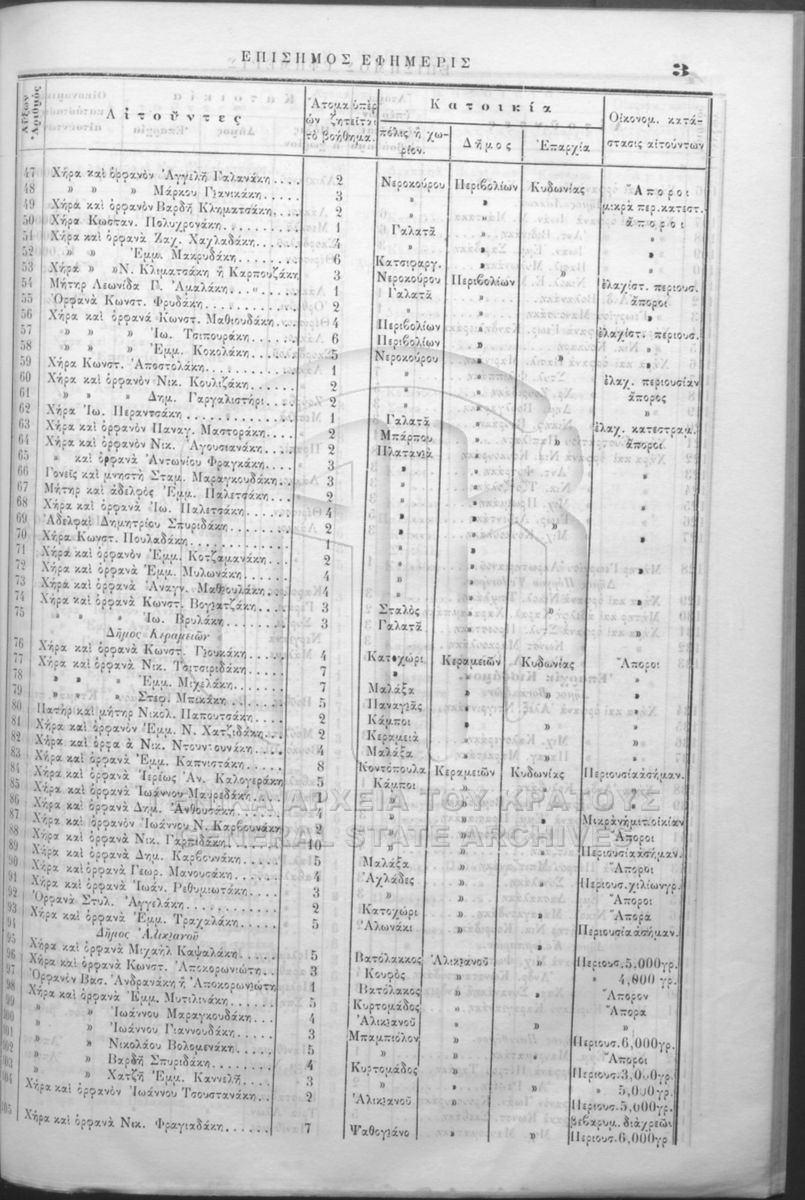 ΕΠΙΣΗΜΟΣ ΕΦΗΜΕΡΙΣ 3
Αὔξων Ἀριθμός Αἰτοῦντες Ἄτομα ὑπὲρ ὧν ζητεῖται τὸ βοήθημα. Κατοικία πόλις ἢ χωρίον. Δῆμος Ἐπαρχία Οἰκονομ. κατάστασις αἰτούντων
47 Χήρα καὶ ὀρφανὸν Ἀγγελῆ Γαλανάκη.... 2 Νεροκούρου Περιβολίων Κυδωνίας Ἄποροι
48 » » » Μάρκου Γιανικάκη.... 3 » » μικρὰ περ. κατεστ.
49 Χήρα καὶ ὀρφανὸν Βαρδῆ Κληματσάκη.. 2 » » ἄποροι
50 Χήρα Κωσταν. Πολυχρονάκη........ 1 Γαλατᾶ » »
51 Χήρα καὶ ὀρφανὰ Ζαχ. Χαχλαδάκη.... 4 » » »
52 » » Ἐμμ. Μακρυδάκη... 6 Κατσιφαργ. » »
53 Χήρα » »Ν. Κλιματσάκη ἢ Καρπουζάκη 3 Νεροκούρου Περιβολίων ἐλαχίστ. περιουσ.
54 Μήτηρ Λεωνίδα Γ. Ἀμαλάκη... 1 Γαλατᾶ » ἄποροι
55 Ὀρφανὰ Κωνστ. Φρυδάκη......... 2 » » »
56 Χήρα καὶ ὀρφανὰ Κωνστ. Μαθιουδάκη.. 4 Περιβολίων » ἐλαχίστ. περιουσ.
57 » » » Ἰω. Τσιπουράκη.... 6 Περιβολίων » »
58 » » » Ἐμμ. Κοκολάκη.... 5 Νεροκούρου » » »
59 Χήρα Κωνστ. Ἀποστολάκη......... 1 » » ἐλαχ. περιουσίαν
60 Χήρα καὶ ὀρφανὸν Νικ. Κουλιζάκη.... 2 » » ἄπορος
61 » » » Δημ. Γαργαλιστήρι.. 2 » » »
62 Χήρα Ἰω. Περαντσάκη........ 1 Γαλατᾶ » ἐλαχ. κατεστραμ.
63 Χήρα καὶ ὀρφανὸν Παναγ. Μαστοράκη.. 2 Μπάρπου » » ἄποροι
64 Χήρα καὶ ὀρφανὸν Νικ. Ἀγουσιανάκη.. 2 Πλατανιὰ » »
65 » καὶ ὀρφανὰ Ἀντωνίου Φραγκάκη... 3 » » »
66 Γονεῖς καὶ μνηστὴ Σταμ. Μαραγκουδάκη. 3 » » »
67 Μήτηρ καὶ ἀδελφὸς Ἐμμ. Παλετσάκη.. 2 » » »
68 Χήρα καὶ ὀρφανὰ Ἰω. Παλετσάκη.... 4 » » »
69 Ἀδελφαὶ Δημητρίου Σπυριδάκη....... 2 » » » »
70 Χήρα Κωνστ. Πουλαδάκη......... 1 » » »
71 Χήρα καὶ ὀρφανὸν Ἐμμ. Κοτζαμανάκη.. 2 » » »
72 Χήρα καὶ ὀρφανὰ Ἐμμ. Μυλωνάκη.... 4 » » »
73 Χήρα καὶ ὀρφανὰ Ἀναγν. Μαθιουλάκη.. 4 » » »
74 Χήρα καὶ ὀρφανὰ Κωνστ. Βογιατζάκη... 3 Σταλὸς » » »
75 » » » Ἰω. Βρυλάκη.... 3 Γαλατᾶ » »
Δῆμος Κεραμειῶν
76 Χήρα καὶ ὀρφανὰ Κωνστ. Γιουκάκη.... 4 Κατοχώρι Κεραμειῶν Κυδωνίας Ἄποροι
77 Χήρα καὶ ὀρφανὰ Νικ. Τσιτσιριδάκη... 7 » » »
78 » » » Ἐμμ. Μιχελάκη.... 7 Μαλάξα » » »
79 » » » Στεφ. Μπικάκη.... 5 Παναγιᾶς » »
80 Πατὴρ καὶ μήτηρ Νικολ. Παπουτσάκη.. 2 Κάμποι » »
81 Χήρα καὶ ὀρφανὸν Ἐμμ. Ν. Χατζιδάκη. 2 Κεραμειὰ » » »
82 Χήρα καὶ ὀρφανὰ Νικ. Ντουντουνάκη.. 4 Μαλάξα » »
83 Χήρα καὶ ὀρφανὰ Ἐμμ. Καπνιστάκη... 8 Κοντόπουλα Κεραμειῶν Κυδωνίας Περιουσία ἀσήμαν.
84 Χήρα καὶ ὀρφανὰ Ἱερέως Ἀν. Καλογεράκη 5 Κάμποι » » »
85 Χήρα καὶ ὀρφανὰ Ἰωάννου Μαυρεδάκη.
86 Χήρα καὶ ὀρφανὰ Δημ. Ἀνθουσάκη... 4 Μικρὰν ἡμιτ. οἰκίαν
87 Χήρα καὶ ὀρφανὸν Ἰωάννου Ν. Καρβουνάκη 2 Ἄποροι
88 Χήρα καὶ ὀρφανὰ Νικ. Γαρπιδάκη.... 10 » » Περιουσία ἀσήμαν.
89 Χήρα καὶ ὀρφανὰ Δημ. Καρβουνάκη... 5 Μαλάξα » » Ἄποροι
90 Χήρα καὶ ὀρφανὰ Γεωρ. Μανουσάκη... 4 Ἀχλάδες » Περιουσ. χιλίων γρ.
91 Χήρα καὶ ὀρφανὰ Ἰωάν. Ρεθυμιωτάκη... 3 » » Ἄποροι
92 Ὀρφανὰ Στυλ. Ἀγγελάκη........ 2 Κατοχώρι » » Ἄπορα
93 Χήρα καὶ ὀρφανὰ Ἐμμ. Τραχαλάκη.... 5 Ἀλωνάκι » Περιουσία ἀσήμαν.
94 Δῆμος Ἀλικιανοῦ »
95 Χήρα καὶ ὀρφανὰ Μιχαὴλ Καψαλάκη.. 5 Βατόλακκος Ἀλικιανοῦ » Περιουσ. 5,000 γρ.
96 Χήρα καὶ ὀρφανὰ Κωνστ. Ἀποκορωνιώτη.. 3 Κουφὸς » » 4,800 γρ.
97 Ὀρφανὸν Βασ. Ἀνδρανάκη ἢ Ἀποκορωνιώτη 1 Βατόλακος » Ἄπορον
98 Χήρα καὶ ὀρφανὰ Ἐμμ. Μυτιλινάκη... 5 Κυρτομάδος » » Ἄπορα
99 » » Ἰωάννου Μαραγκουδάκη.. 4 Ἀλικιανοῦ » »
100 » » Ἰωάννου Γιαννουδάκη.... 3 Μπαμπιόλον » » Περιουσ. 6,000 γρ.
101 » » Νικολάου Βολομενάκη.... 5 » » Ἄποροι
102 » » Βαρδῆ Σπυριδάκη...... 4 Κυρτομάδος » Περιουσ. 3,000 γρ.
103 » » Χατζῆ Ἐμμ. Καννελῆ... 3 » » » » 5,000 γρ.
104 Χήρα καὶ ὀρφανὸν Ἰωάννου Τσουστανάκη.. 2 Ἀλικιανοῦ » Περιουσ. 5,000 γρ. βεβαρυμ. διὰ χρεῶν
105 Χήρα καὶ ὀρφανὰ Νικ. Φραγιαδάκη..... 7 Ψαθογιάνο » » Περιουσ. 6,000 γρ
ΓΕΝΙΚΑ ΑΡΧΕΙΑ ΤΟΥ ΚΡΑΤΟΥΣ
GENERAL STATE ARCHIVES